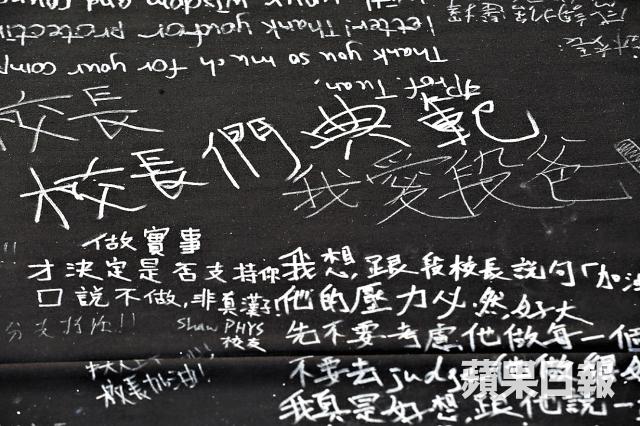 Thank you so much for your comp
letter! Thank you for protectin
your wisdom and coura
Prof. Tuan,
校長
校長們典範
我愛段爸
做實事
才決定是否支持你
口說不做,非真漢子!
Shaw PHYS
校友
校長加油!
我想,跟段校長說句「加油
他的壓力必然好大
先不要考慮他做每一個
不要去judge
我真是好想,跟他說一
蘋果日報